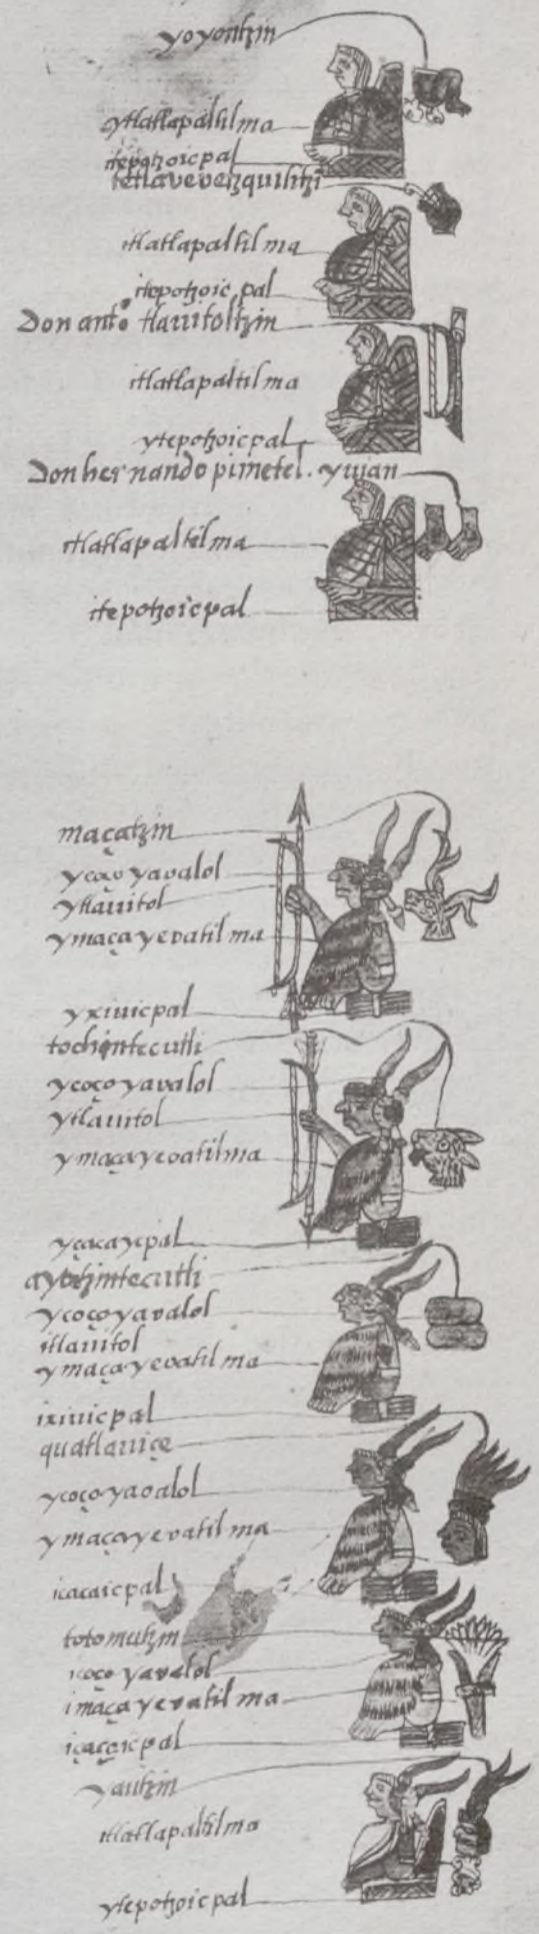 yoyontzin
ytlatlapaltilma
itepotzoicpal
tetlavevezquititzi
itlatlapaltilma
itepotzoic pal
Don antº tlauitoltzin
itlatlapaltilma
ytepotzoicpal
Don hernando pimetel. yvian
itlatlapaltilma
itepotzoicpal
maçatzin
ycoço yavalol
ytlauitol
ymaça yevatilma
yxiuicpal
tochintecutli
ycoço yavalol
ytlauitol
ymaça yevatilma
yçacaycpal
ayotzintecutli
ycoço yavalol
itlauitol
ymaça yevatilma
ixiuicpal
quatlatiçe
ycoço yavalol
ymaça yevatilma
içacaicpal
totomitzin
icoço yavalol
imaça yevatilma
içacaicpal
yautzin
itlatlapaltilma
ytepotzoicpal